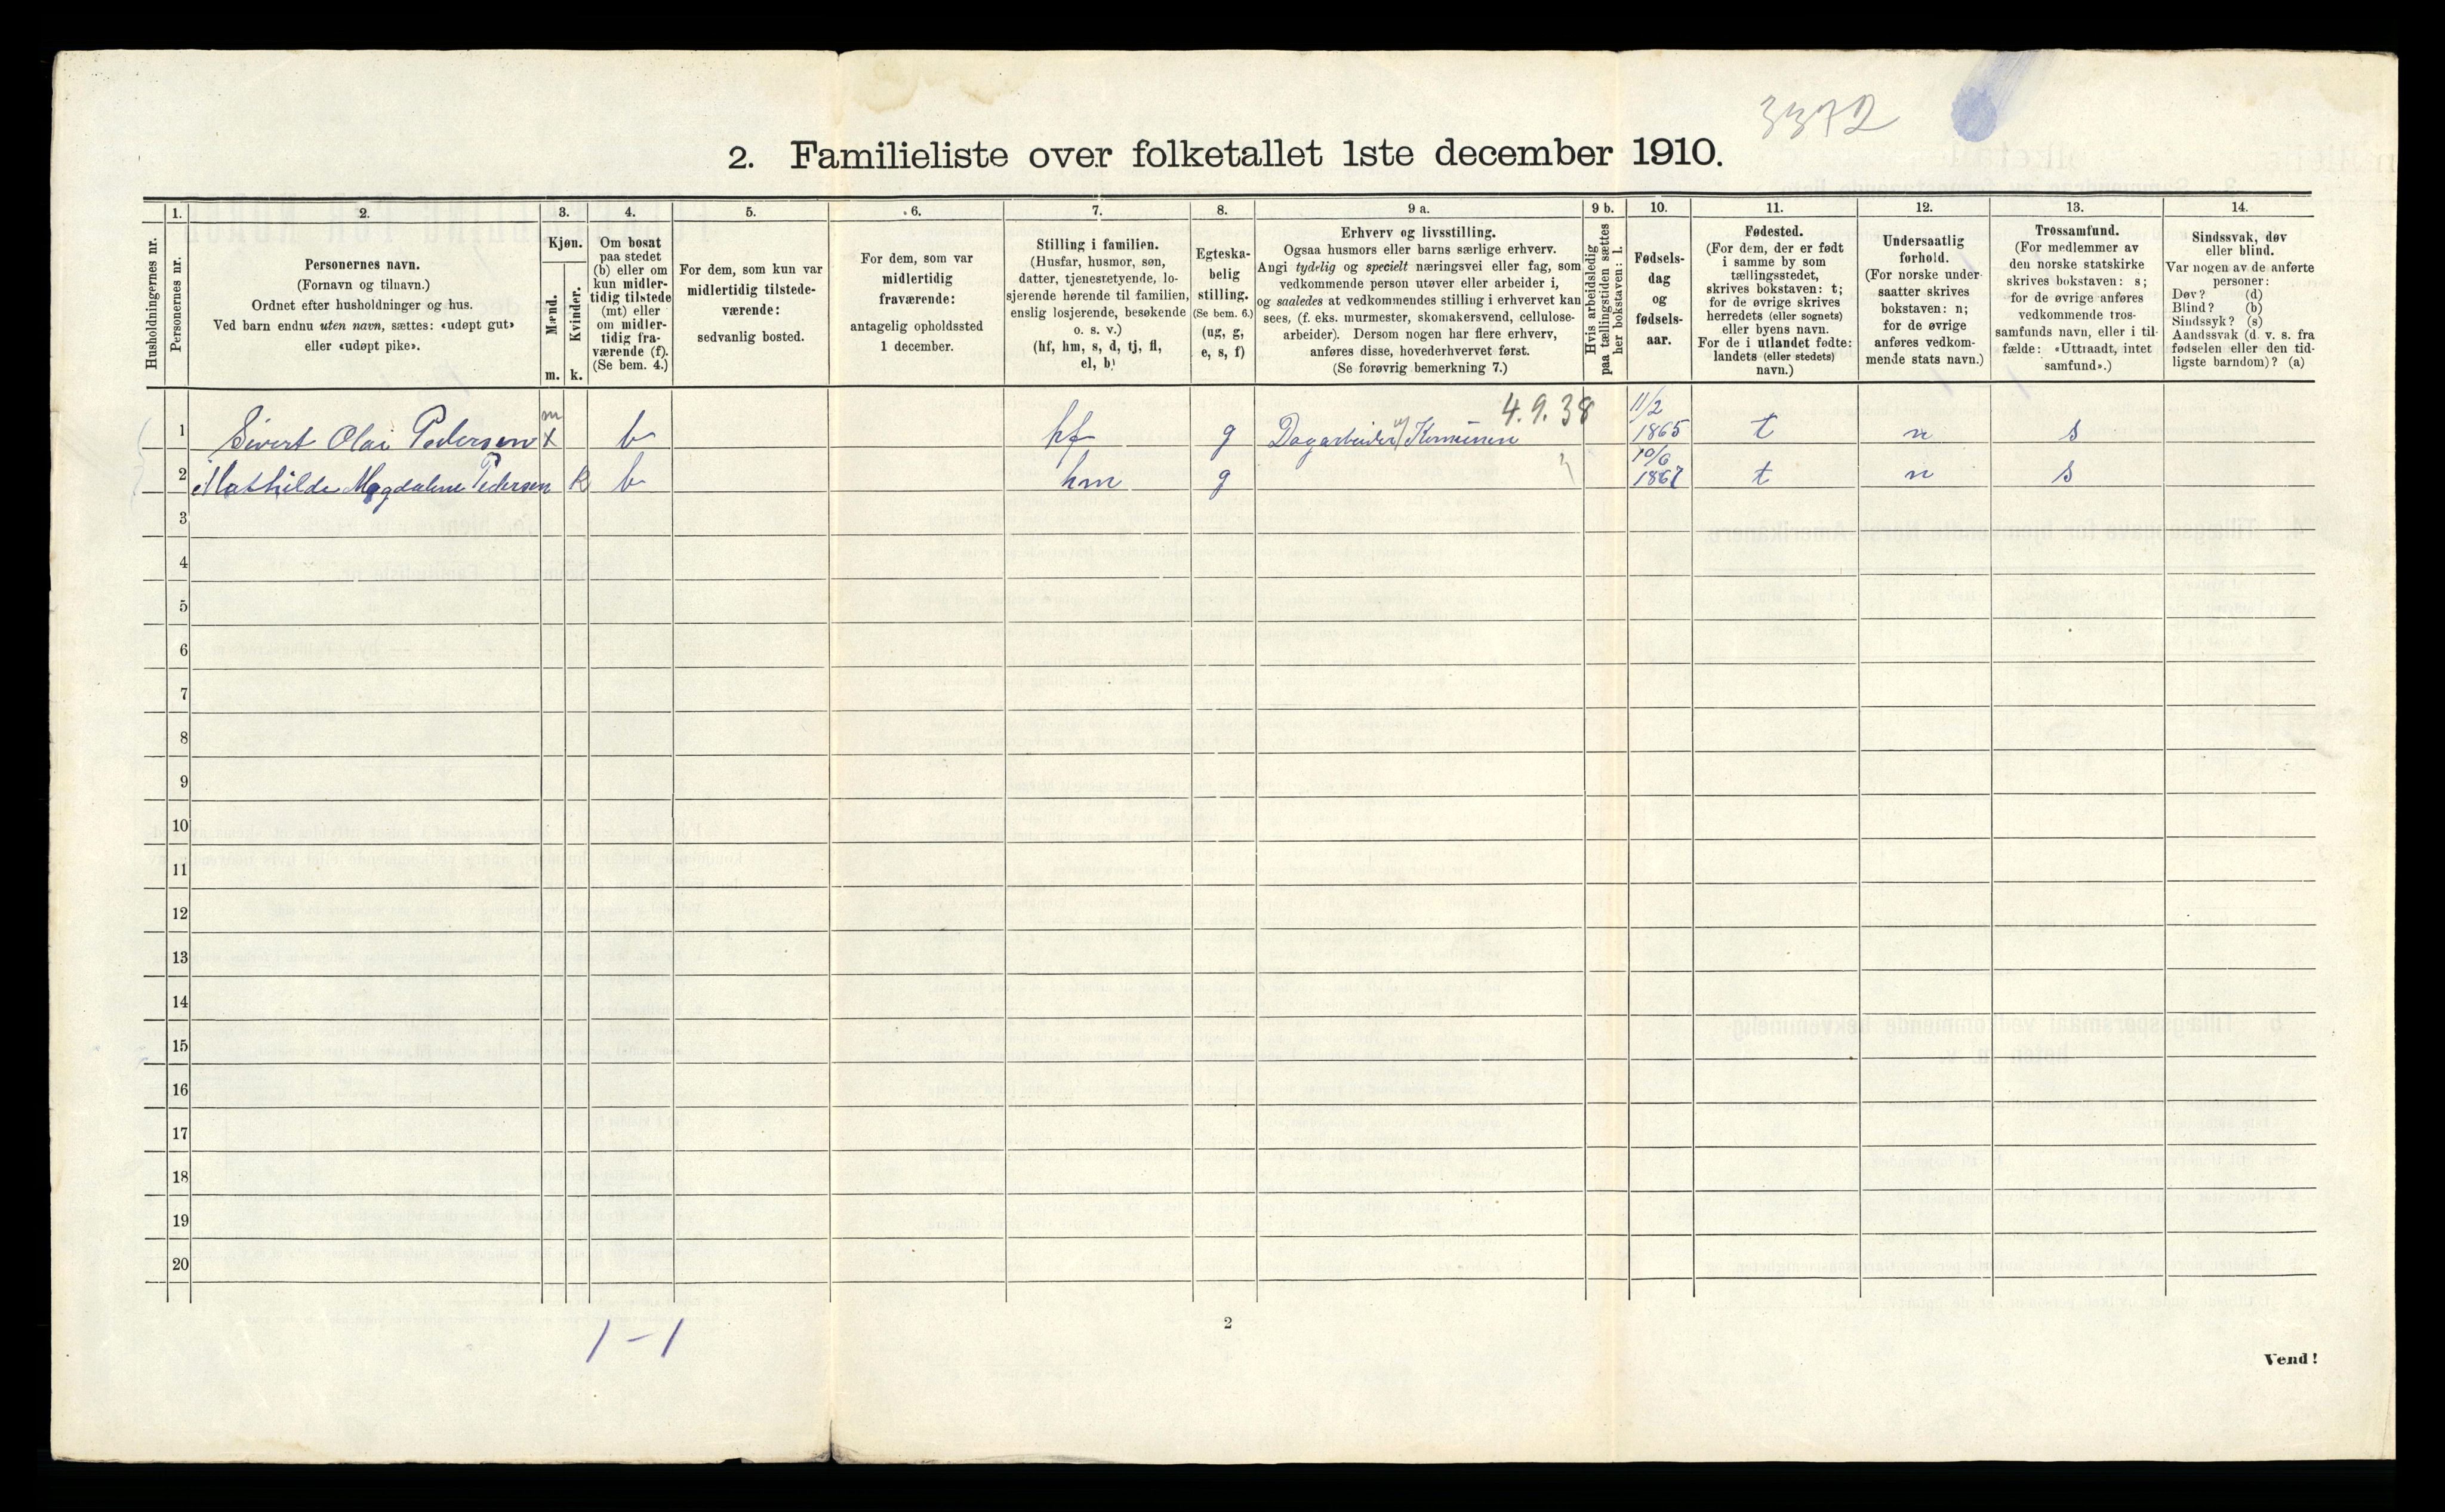 3372
2. Familieliste over folketallet 1ste december 1910.
1. 2. 3. 4. 5. 6. 7. 8. 9 a. 9 b. 10. 11. 12. 13. 14.
Husholdningernes nr.
Personernes nr.
Personernes navn.
(Fornavn og tilnavn.)
Ordnet efter husholdninger og hus.
Ved barn endnu uten navn, sættes: «udøpt gut»
eller «udøpt pike».
Kjøn.
Mænd.
m.
Kvinder.
k.
Om bosat
paa stedet
(b) eller om
kun midler-
tidig tilstede
(mt) eller
om midler-
tidig fra-
værende (f).
(Se bem. 4.)
For dem, som kun var
midlertidig tilstede-
værende:
sedvanlig bosted.
For dem, som var
midlertidig
fraværende:
antagelig opholdssted
1 december.
Stilling i familien.
(Husfar, husmor, søn,
datter, tjenestetyende, lo-
sjerende hørende til familien,
enslig losjerende, besøkende
o. s. v.)
(hf, hm, s, d, tj, fl,
el, b)
Egteska-
belig
stilling.
(Se bem. 6.)
(ug, g,
e, s, f)
Erhverv og livsstilling.
Ogsaa husmors eller barns særlige erhverv.
Angi tydelig og specielt næringsvei eller fag, som
vedkommende person utøver eller arbeider i,
og saaledes at vedkommendes stilling i erhvervet kan
sees, (f. eks. murmester, skomakersvend, cellulose-
arbeider). Dersom nogen har flere erhverv,
anføres disse, hovederhvervet først.
(Se forøvrig bemerkning 7.)
Hvis arbeidsledig
paa tællingstiden sættes
her bokstaven: l.
Fødsels-
dag
og
fødsels-
aar.
Fødested.
(For dem, der er født
i samme by som
tællingsstedet,
skrives bokstaven: t;
for de øvrige skrives
herredets (eller sognets)
eller byens navn.
For de i utlandet fødte:
landets (eller stedets)
navn.)
Undersaatlig
forhold.
(For norske under-
saatter skrives
bokstaven: n;
for de øvrige
anføres vedkom-
mende stats navn.)
Trossamfund.
(For medlemmer av
den norske statskirke
skrives bokstaven: s;
for de øvrige anføres
vedkommende tros-
samfunds navn, eller i til-
fælde: «Uttraadt, intet
samfund».)
Sindssvak, døv
eller blind.
Var nogen av de anførte
personer:
Døv? (d)
Blind? (b)
Sindssyk? (s)
Aandssvak (d. v. s. fra
fødselen eller den tid-
ligste barndom)? (a)
m 4.9.38 11/2
1 Sivert Olai Pedersen x b hf g Dagarbeider v/ Komunen 1865 t n s
10/6
2 Mathilde Magdalene Pedersen k b hm g 1867 t n s
3
4
5
6
7
8
9
10
11
12
13
14
15
16
17
18
19
20
1-1
2
Vend!